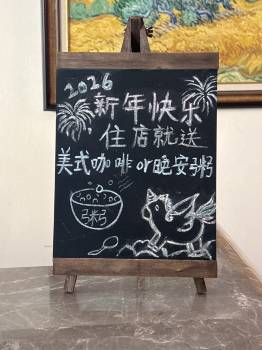 2026
新年快乐
住店就送
美式咖啡or晚安粥
粥